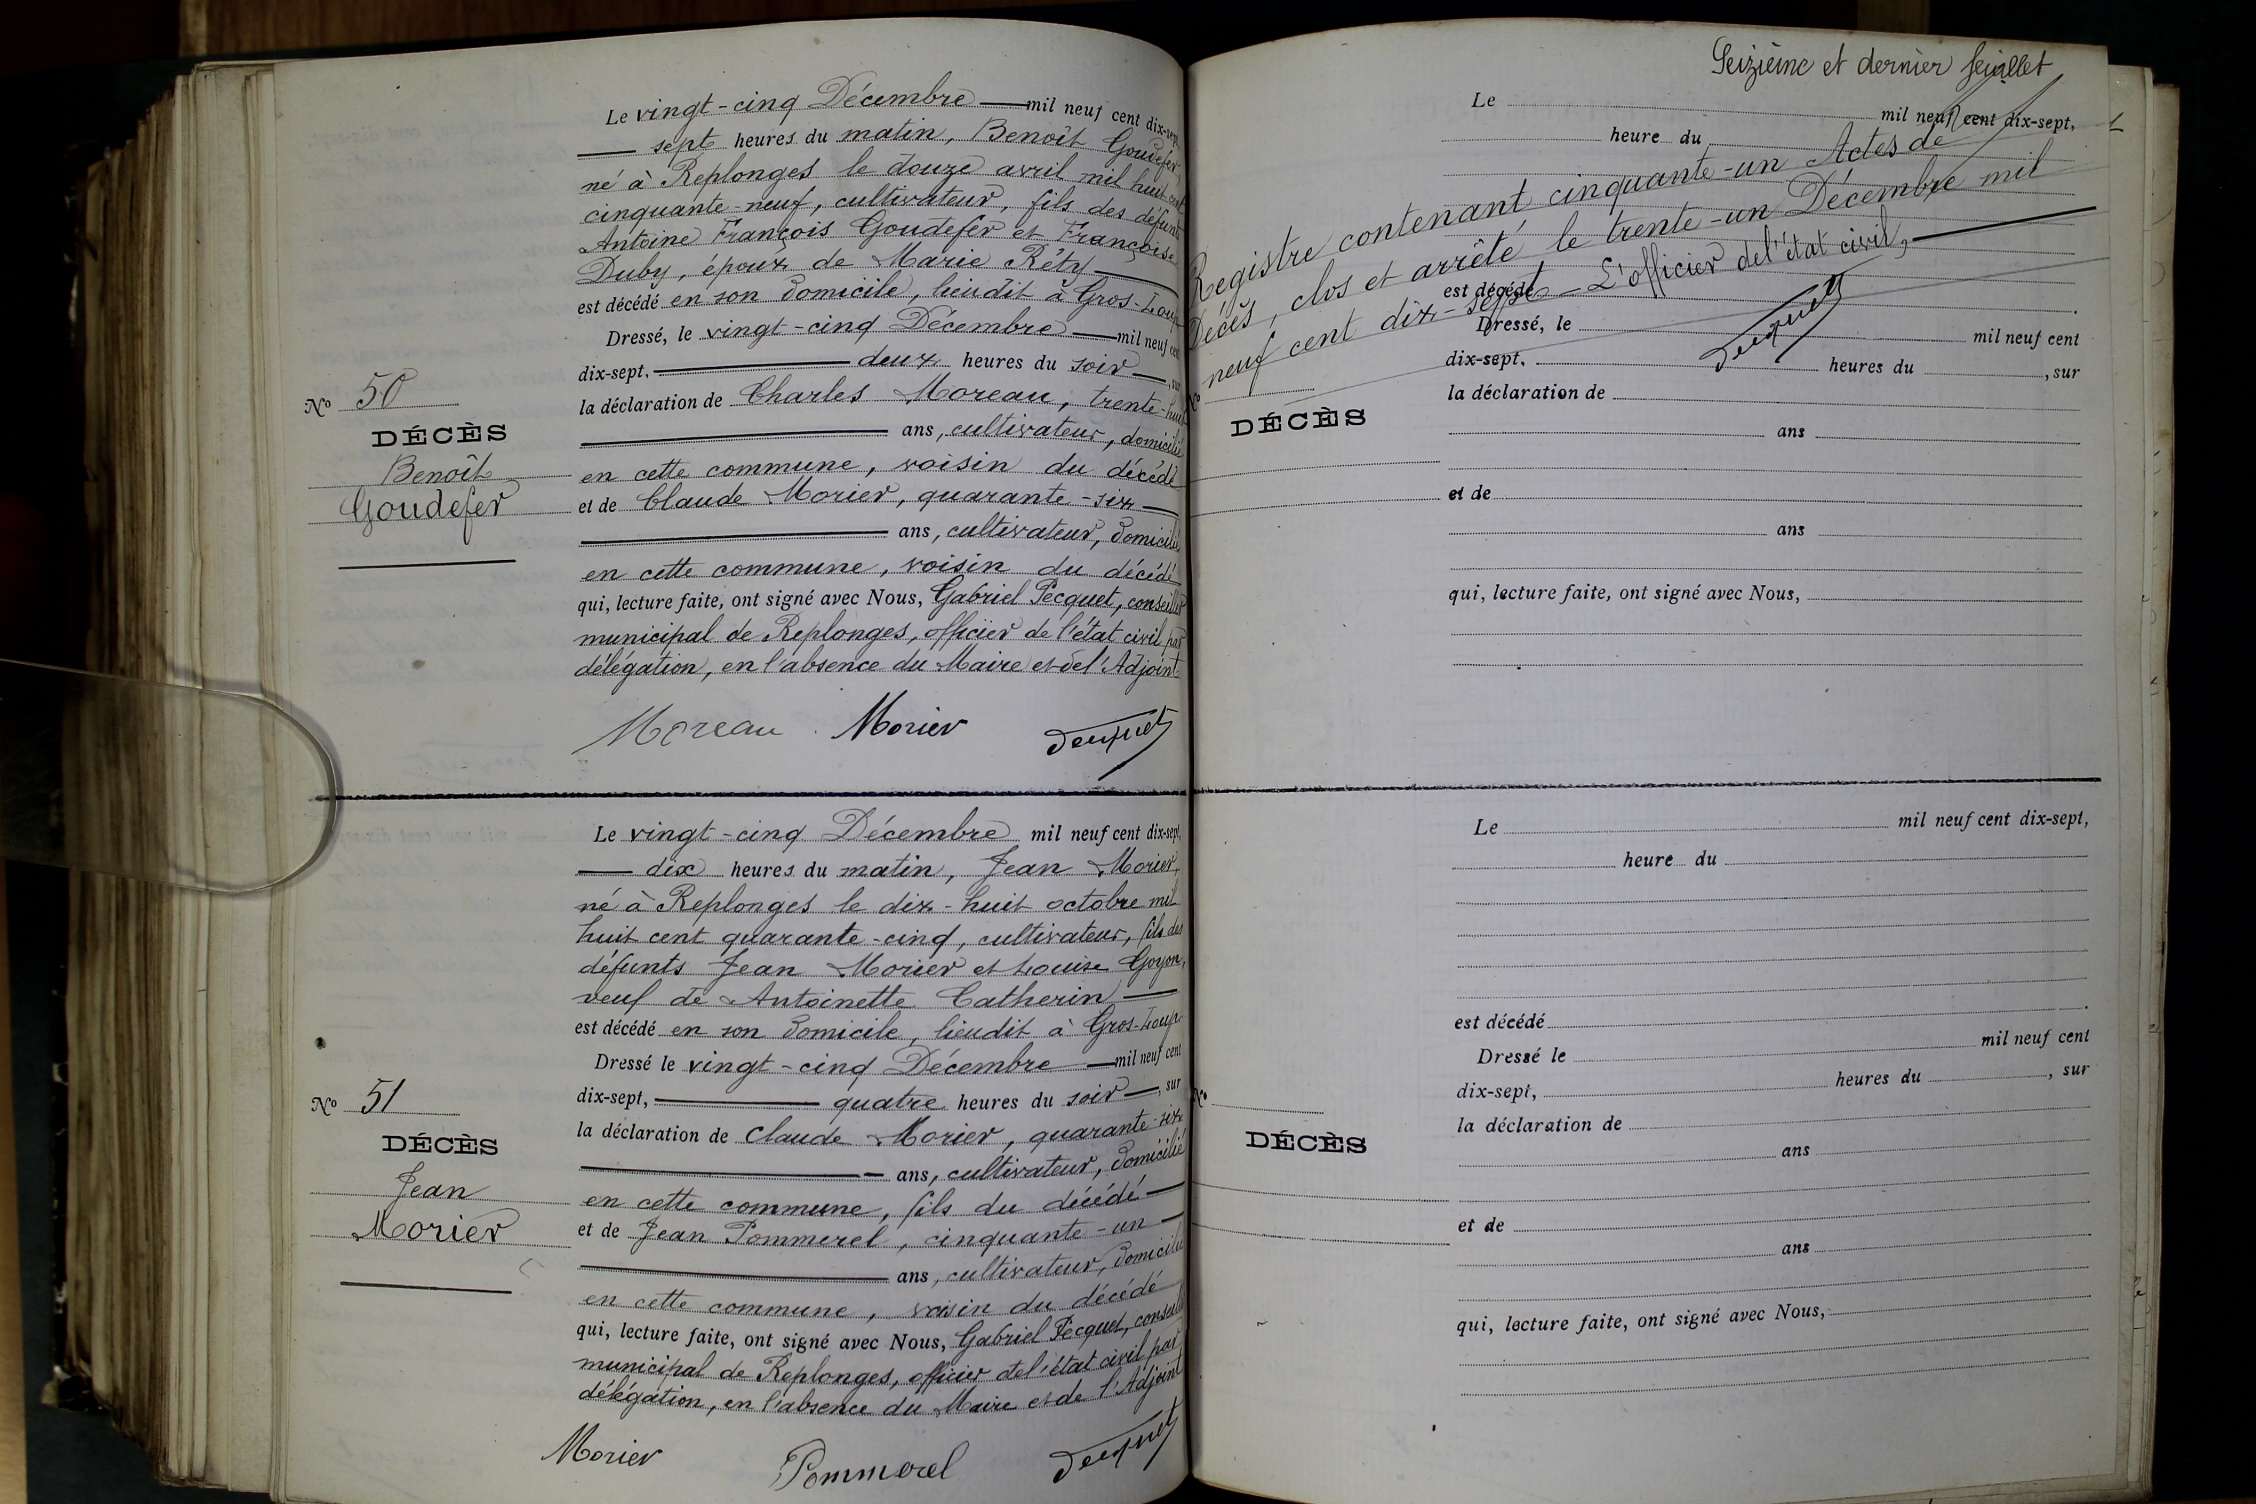 Le vingt-cinq Décembre mil neuf cent dix-sept
sept heures du matin, Benoît Goudefer,
né à Replonges le douze avril mil huit cent
cinquante-neuf, cultivateur, fils des défunts
Antoine François Goudefer et Françoise
Duby, époux de Marie Réty
est décédé en son domicile, lieudit à Gros-Loup
Dressé, le vingt-cinq Décembre mil neuf cent
dix-sept, deux heures du soir, sur
la déclaration de Charles Moreau, trente-huit
ans, cultivateur, domicilié
en cette commune, voisin du décédé
et de Claude Morier, quarante-six
ans, cultivateur, domicilié
en cette commune, voisin du décédé
qui, lecture faite, ont signé avec Nous, Gabriel Pecquet, conseiller
municipal de Replonges, officier de l'état civil par
délégation, en l'absence du Maire et de l'Adjoint
Moreau Morier
No 50
DÉCÈS
Benoît
Goudefer
Le vingt-cinq Décembre mil neuf cent dix-sept,
dix heures du matin, Jean Morier,
né à Replonges le dix-huit octobre mil
huit cent quarante-cinq, cultivateur, fils des
défunts Jean Morier et Louise Goyon,
veuf de Antoinette Catherin
est décédé en son domicile, lieudit à Gros-Loup
Dressé le vingt-cinq Décembre mil neuf cent
dix-sept, quatre heures du soir, sur
la déclaration de Claude Morier, quarante-six
ans, cultivateur, domicilié
en cette commune, fils du décédé
et de Jean Pommerel, cinquante-un
ans, cultivateur, domicilié
en cette commune, voisin du décédé
qui, lecture faite, ont signé avec Nous, Gabriel Pecquet, conseiller
municipal de Replonges, officier de l'état civil par
délégation, en l'absence du Maire et de l'Adjoint
Morier Pommerel
No 51
DÉCÈS
Jean
Morier
Seizième et dernier feuillet
Le mil neuf cent dix-sept,
heure du
Registre contenant cinquante-un Actes de
Décès, clos et arrêté le trente-un Décembre mil
neuf cent dix-sept L'officier de l'état civil,
est décédé
Dressé, le mil neuf cent
dix-sept, heures du , sur
la déclaration de
ans
et de
ans
qui, lecture faite, ont signé avec Nous,
No
DÉCÈS
Le mil neuf cent dix-sept,
heure du
est décédé
Dressé le mil neuf cent
dix-sept, heures du , sur
la déclaration de
ans
et de
ans
qui, lecture faite, ont signé avec Nous,
No
DÉCÈS